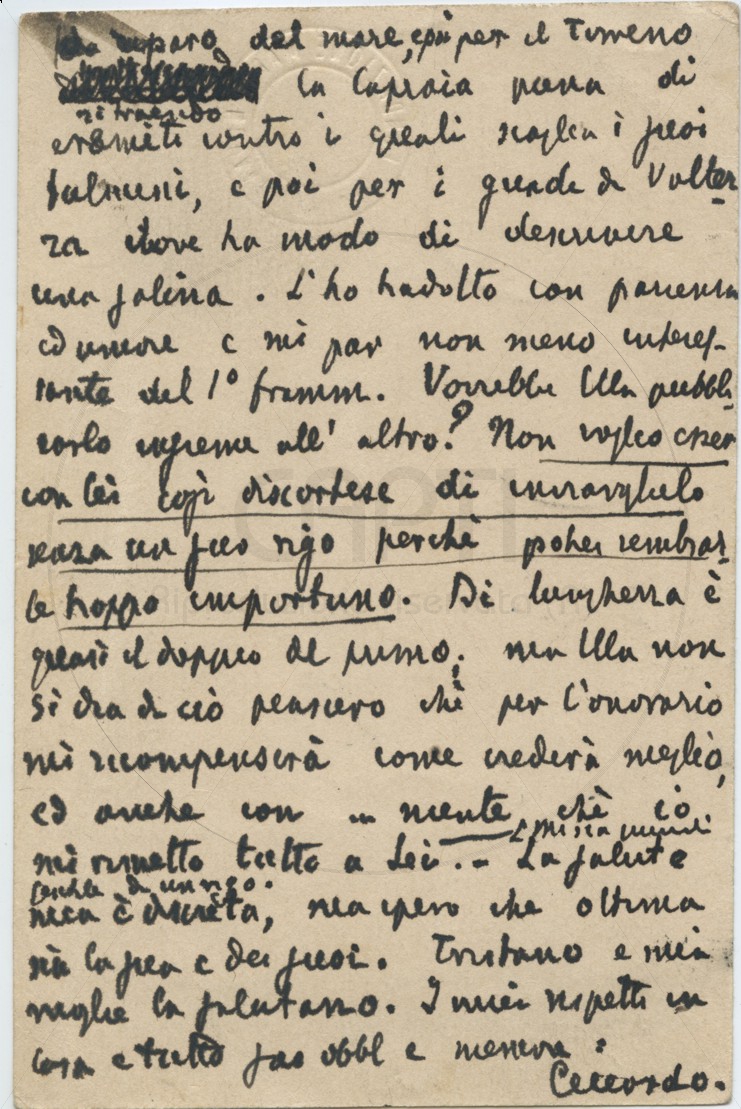 da riparo del mare, così per il Tirreno
la Capraia piena di
ritraendo
eremiti contro i quali scaglia i suoi
fulmini, e poi per i guadi di Volter-
ra dove ha modo di descrivere
una salina. L'ho tradotto con pazienza
ed amore e mi par non meno interes-
sante del 1° framm. Vorrebbe Ella pubbli-
carlo insieme all'altro? Non voglio esser
con lei così discortese di inviarglielo
senza un suo rigo perchè potrei sembrar-
le troppo importuno. Di lunghezza è
quasi il doppio del primo; ma Ella non
si dia di ciò pensiero chè per l'onorario
mi ricompenserà come crederà meglio,
ed anche con ... niente chè io
mi rimetto tutto a Lei. - La salute
E mi sia
anche di un rigo.
mia è discreta, ma spero che ottima
sia la sua e dei suoi. Tristano e mia
moglie la salutano. I miei rispetti in
casa e tutto suo obbl e
Ceccardo.